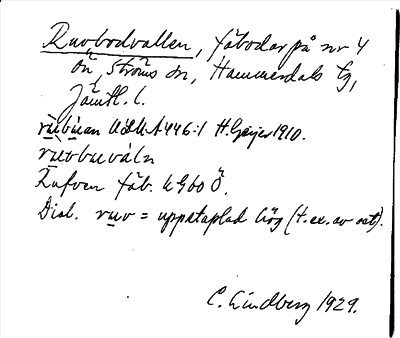 Ruvbodvallen, fäbodar på nr 4
Ön, Ströms sn, Hammerdals tg,
Jämtl. l.
rùbúan ULMA 446:1 H. Geijer 1910.
ruvbuváln
Rufven fäb. UG 60 Ö.
Dial. ruv = uppstaplad hög (t.ex. av ost).
C. Lindberg 1929.